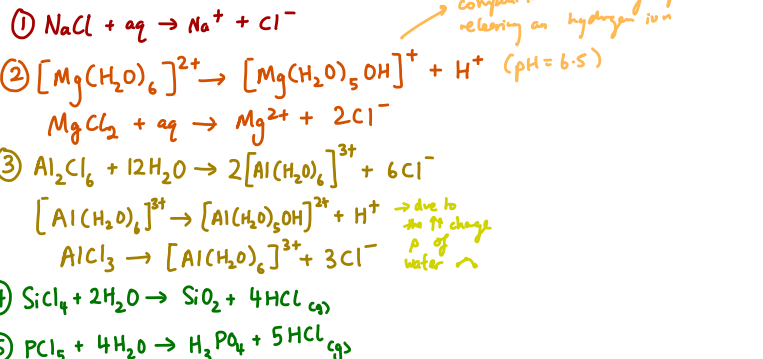 releasing an hydrogen ion
① NaCl + aq → Na⁺ + Cl⁻
② [Mg(H₂O)₆]²⁺ → [Mg(H₂O)₅OH]⁺ + H⁺ (pH = 6.5)
MgCl₂ + aq → Mg²⁺ + 2Cl⁻
③ Al₂Cl₆ + 12H₂O → 2[Al(H₂O)₆]³⁺ + 6Cl⁻
[Al(H₂O)₆]³⁺ → [Al(H₂O)₅OH]²⁺ + H⁺ → due to
the ↑↑ charge
ρ of
water
AlCl₃ → [Al(H₂O)₆]³⁺ + 3Cl⁻
④ SiCl₄ + 2H₂O → SiO₂ + 4HCl (g)
⑤ PCl₅ + 4H₂O → H₃PO₄ + 5HCl (g)